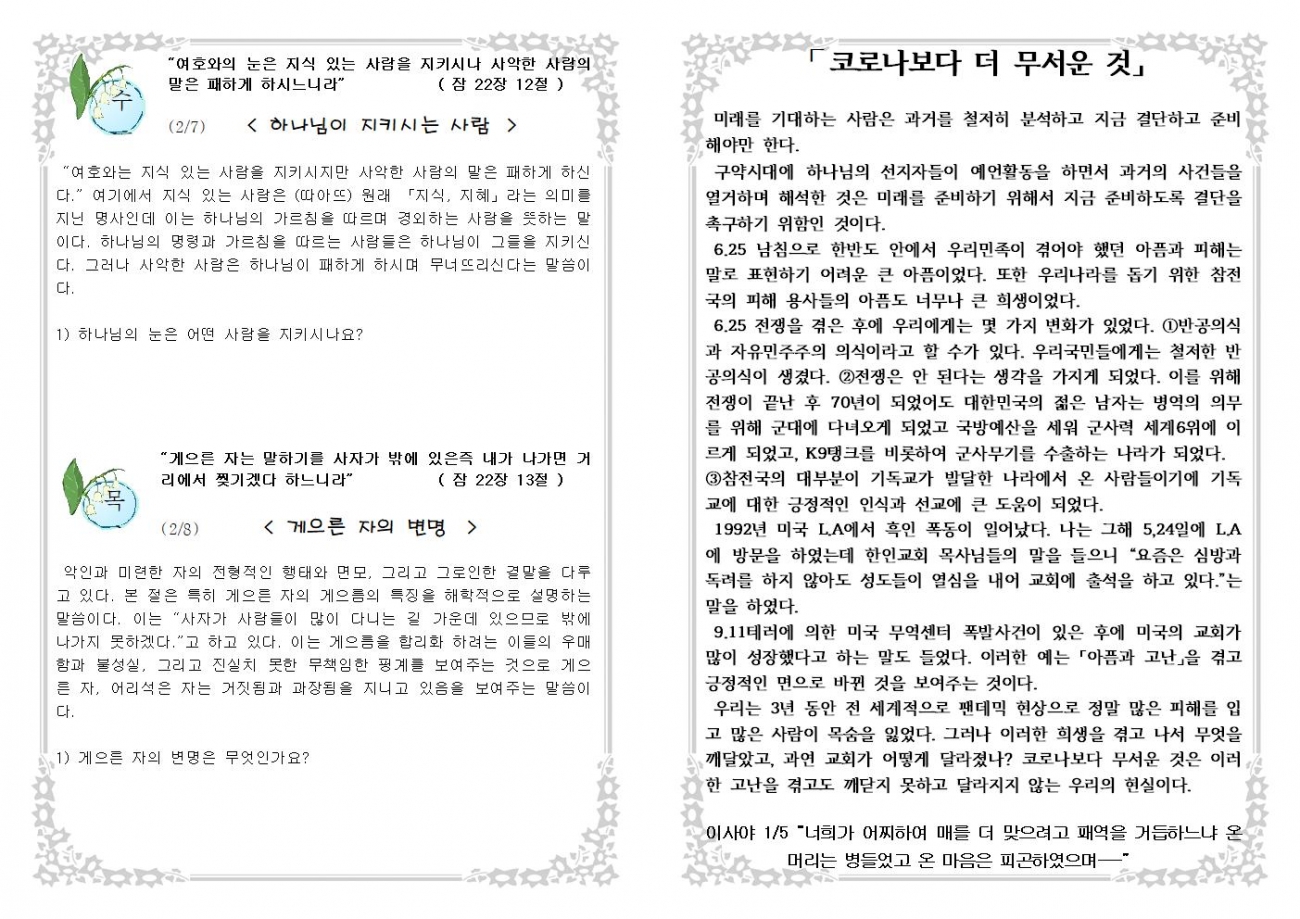 수
“여호와의 눈은 지식 있는 사람을 지키시나 사악한 사람의
말은 패하게 하시느니라” ( 잠 22장 12절 )
(2/7) < 하나님이 지키시는 사람 >
“여호와는 지식 있는 사람을 지키시지만 사악한 사람의 말은 패하게 하신
다.” 여기에서 지식 있는 사람은 (따아뜨) 원래 「지식, 지혜」라는 의미를
지닌 명사인데 이는 하나님의 가르침을 따르며 경외하는 사람을 뜻하는 말
이다. 하나님의 명령과 가르침을 따르는 사람들은 하나님이 그들을 지키신
다. 그러나 사악한 사람은 하나님이 패하게 하시며 무너뜨리신다는 말씀이
다.
1) 하나님의 눈은 어떤 사람을 지키시나요?
목
“게으른 자는 말하기를 사자가 밖에 있은즉 내가 나가면 거
리에서 찢기겠다 하느니라” ( 잠 22장 13절 )
(2/8) < 게으른 자의 변명 >
악인과 미련한 자의 전형적인 행태와 면모, 그리고 그로인한 결말을 다루
고 있다. 본 절은 특히 게으른 자의 게으름의 특징을 해학적으로 설명하는
말씀이다. 이는 “사자가 사람들이 많이 다니는 길 가운데 있으므로 밖에
나가지 못하겠다.”고 하고 있다. 이는 게으름을 합리화 하려는 이들의 우매
함과 불성실, 그리고 진실치 못한 무책임한 핑계를 보여주는 것으로 게으
른 자, 어리석은 자는 거짓됨과 과장됨을 지니고 있음을 보여주는 말씀이
다.
1) 게으른 자의 변명은 무엇인가요?
「코로나보다 더 무서운 것」
미래를 기대하는 사람은 과거를 철저히 분석하고 지금 결단하고 준비
해야만 한다.
구약시대에 하나님의 선지자들이 예언활동을 하면서 과거의 사건들을
열거하며 해석한 것은 미래를 준비하기 위해서 지금 준비하도록 결단을
촉구하기 위함인 것이다.
6.25 남침으로 한반도 안에서 우리민족이 겪어야 했던 아픔과 피해는
말로 표현하기 어려운 큰 아픔이었다. 또한 우리나라를 돕기 위한 참전
국의 피해 용사들의 아픔도 너무나 큰 희생이었다.
6.25 전쟁을 겪은 후에 우리에게는 몇 가지 변화가 있었다. ①반공의식
과 자유민주주의 의식이라고 할 수가 있다. 우리국민들에게는 철저한 반
공의식이 생겼다. ②전쟁은 안 된다는 생각을 가지게 되었다. 이를 위해
전쟁이 끝난 후 70년이 되었어도 대한민국의 젊은 남자는 병역의 의무
를 위해 군대에 다녀오게 되었고 국방예산을 세워 군사력 세계6위에 이
르게 되었고, K9탱크를 비롯하여 군사무기를 수출하는 나라가 되었다.
③참전국의 대부분이 기독교가 발달한 나라에서 온 사람들이기에 기독
교에 대한 긍정적인 인식과 선교에 큰 도움이 되었다.
1992년 미국 L.A에서 흑인 폭동이 일어났다. 나는 그해 5,24일에 L.A
에 방문을 하였는데 한인교회 목사님들의 말을 들으니 “요즘은 심방과
독려를 하지 않아도 성도들이 열심을 내어 교회에 출석을 하고 있다.”는
말을 하였다.
9.11테러에 의한 미국 무역센터 폭발사건이 있은 후에 미국의 교회가
많이 성장했다고 하는 말도 들었다. 이러한 예는「아픔과 고난」을 겪고
긍정적인 면으로 바뀐 것을 보여주는 것이다.
우리는 3년 동안 전 세계적으로 팬데믹 현상으로 정말 많은 피해를 입
고 많은 사람이 목숨을 잃었다. 그러나 이러한 희생을 겪고 나서 무엇을
깨달았고, 과연 교회가 어떻게 달라졌나? 코로나보다 무서운 것은 이러
한 고난을 겪고도 깨닫지 못하고 달라지지 않는 우리의 현실이다.
이사야 1/5 “너희가 어찌하여 매를 더 맞으려고 패역을 거듭하느냐 온
머리는 병들었고 온 마음은 피곤하였으며──”